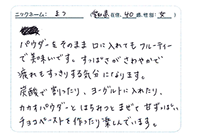 ニックネーム: よつ 愛知県 在住、40歳、性別( 女 )
パウダーをそのまま口に入れてもフルーティー
で美味しいです。すっぱさがさわやかで
疲れもすっきりする気分になります。
炭酸で割ったり、ヨーグルトに入れたり、
カカオパウダーとはちみつとまぜて甘ずっぱい
チョコペーストを作ったり楽しんでいます。